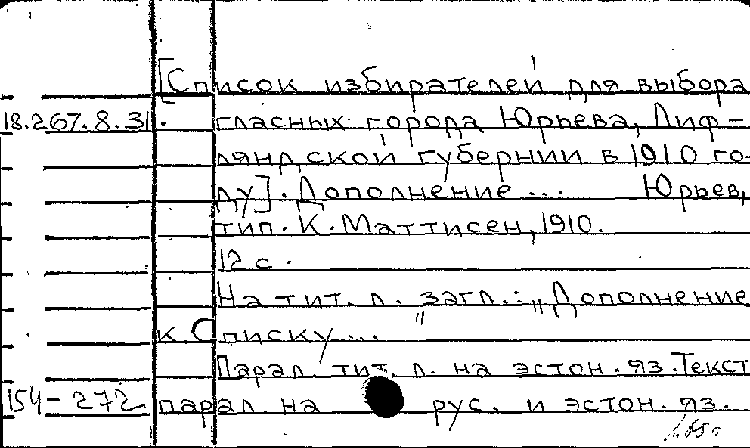 [Список избирателей для выбора
18.267.8.31. гласных города Юрьева, Лиф-
ляндской губернии в 1910 го-
ду]. Дополнение... Юрьев,
тип. К. Маттисен, 1910.
12 с.
На тит. л. загл.: „Дополнение
к Списку..."
Парал. тит. л. на эстон. яз. Текст
154-272 парал. на рус. и эстон. яз.